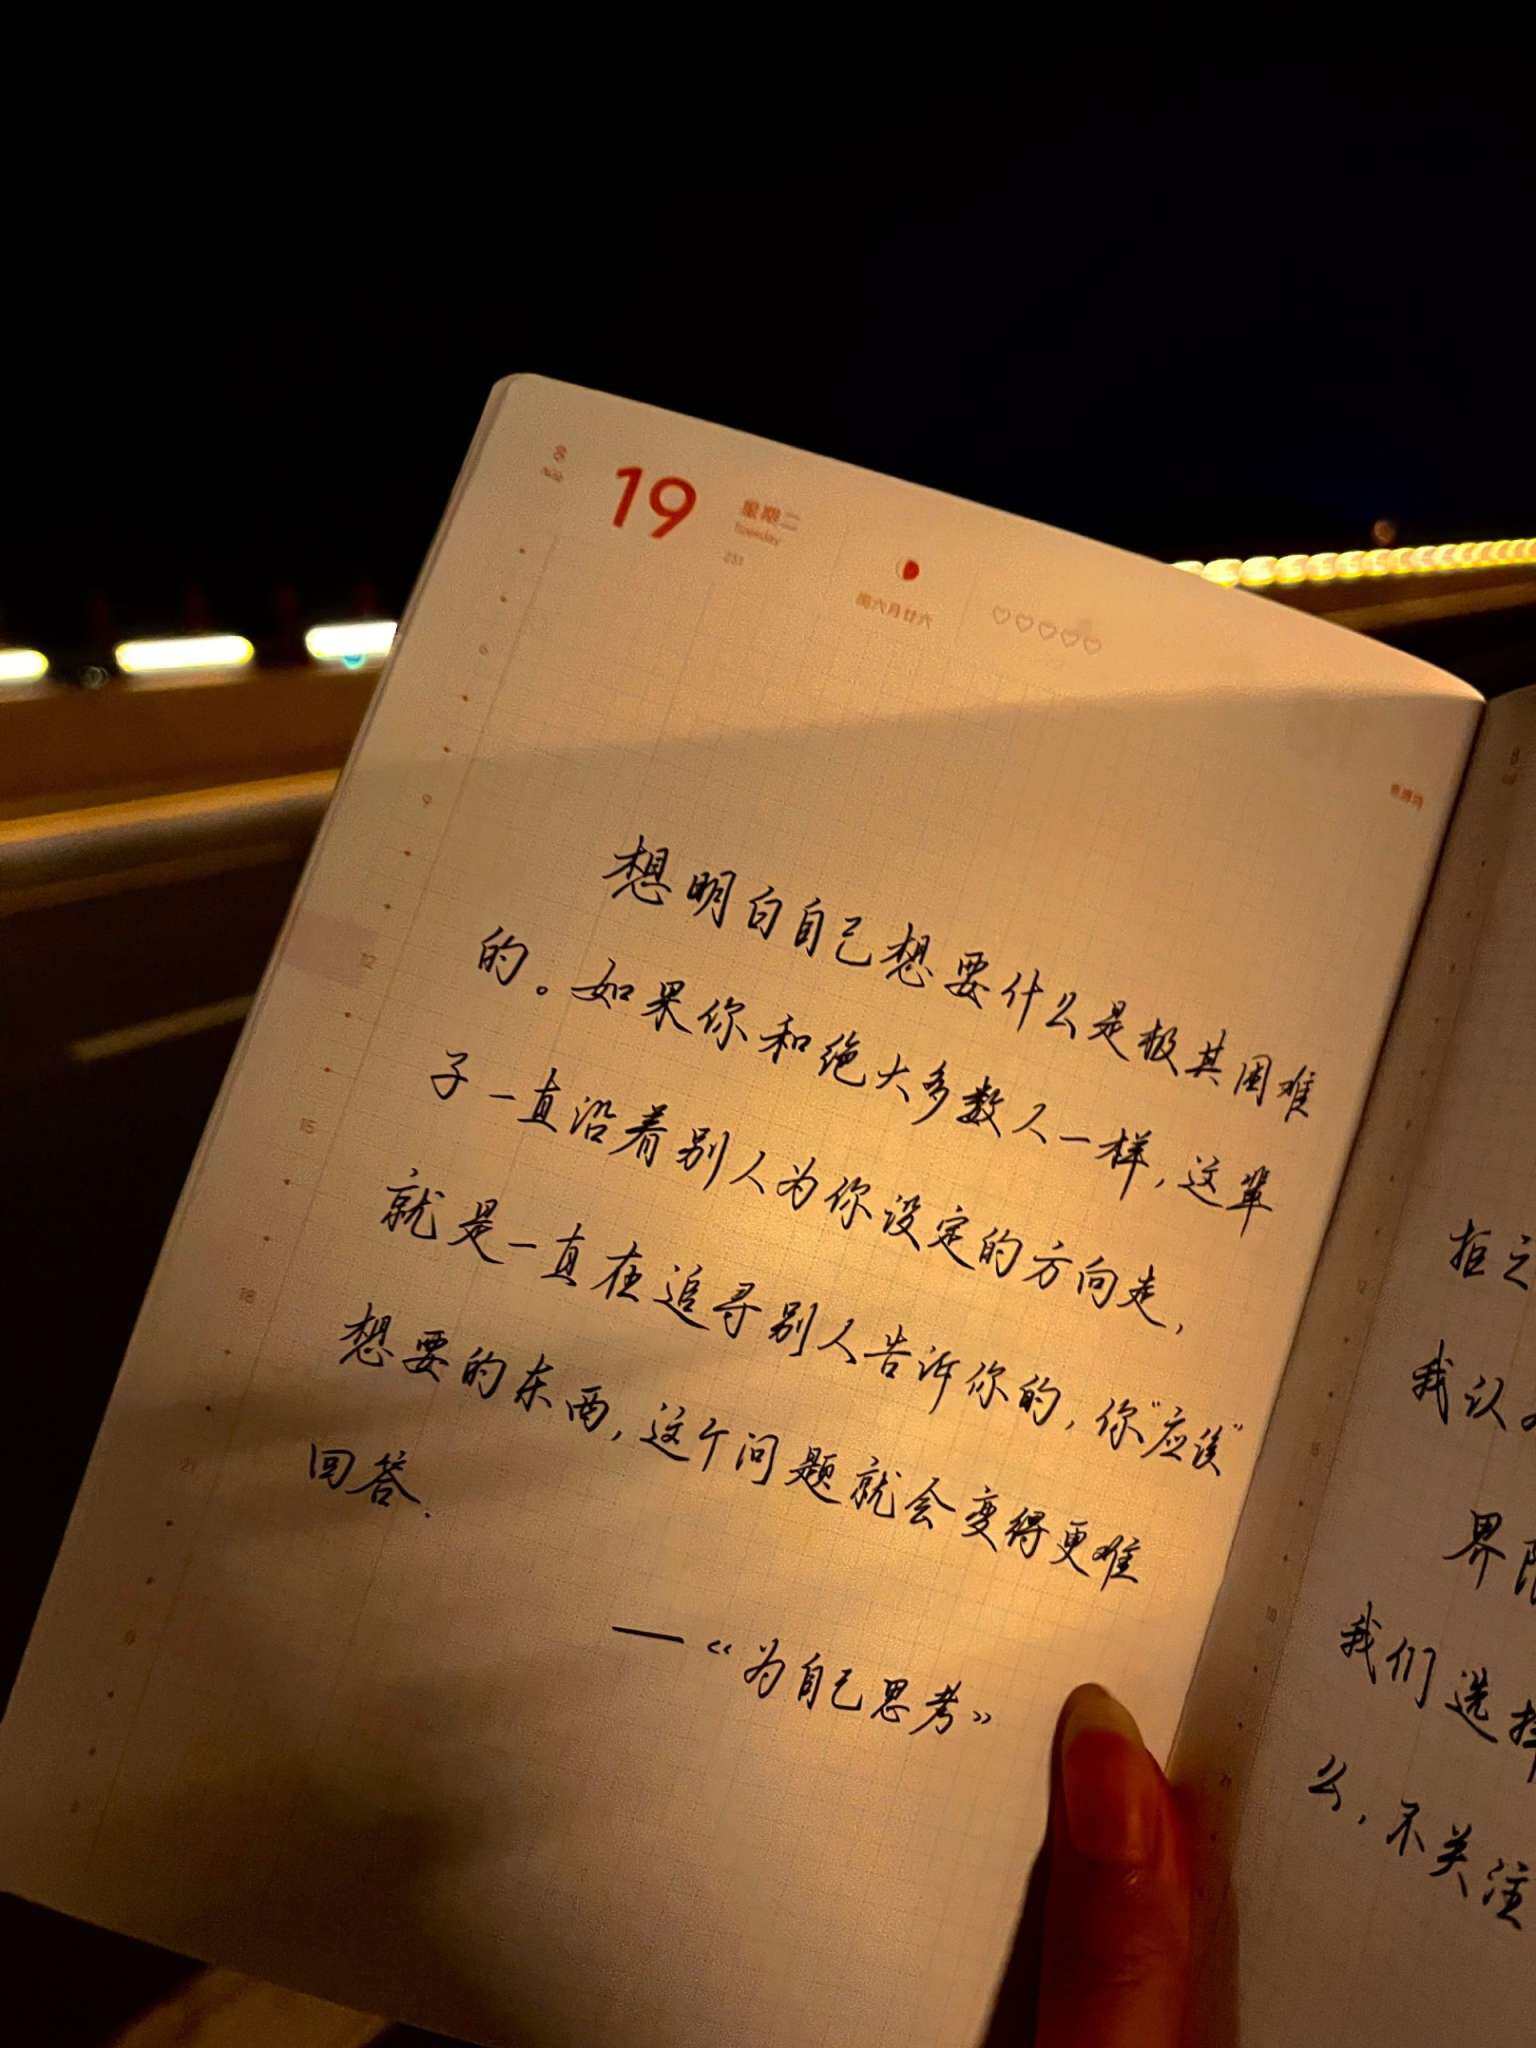 8
Aug
19
星期二
Tuesday
231
闰六月廿六
6
9
12
15
18
21
想明白自己想要什么是极其困难
的。如果你和绝大多数人一样,这辈
子一直沿着别人为你设定的方向走,
就是一直在追寻别人告诉你的,你"应该"
想要的东西,这个问题就会变得更难
回答.
—《为自己思考》
8
拒之
我认为
界限
我们选择
么,不关注
12
18
21